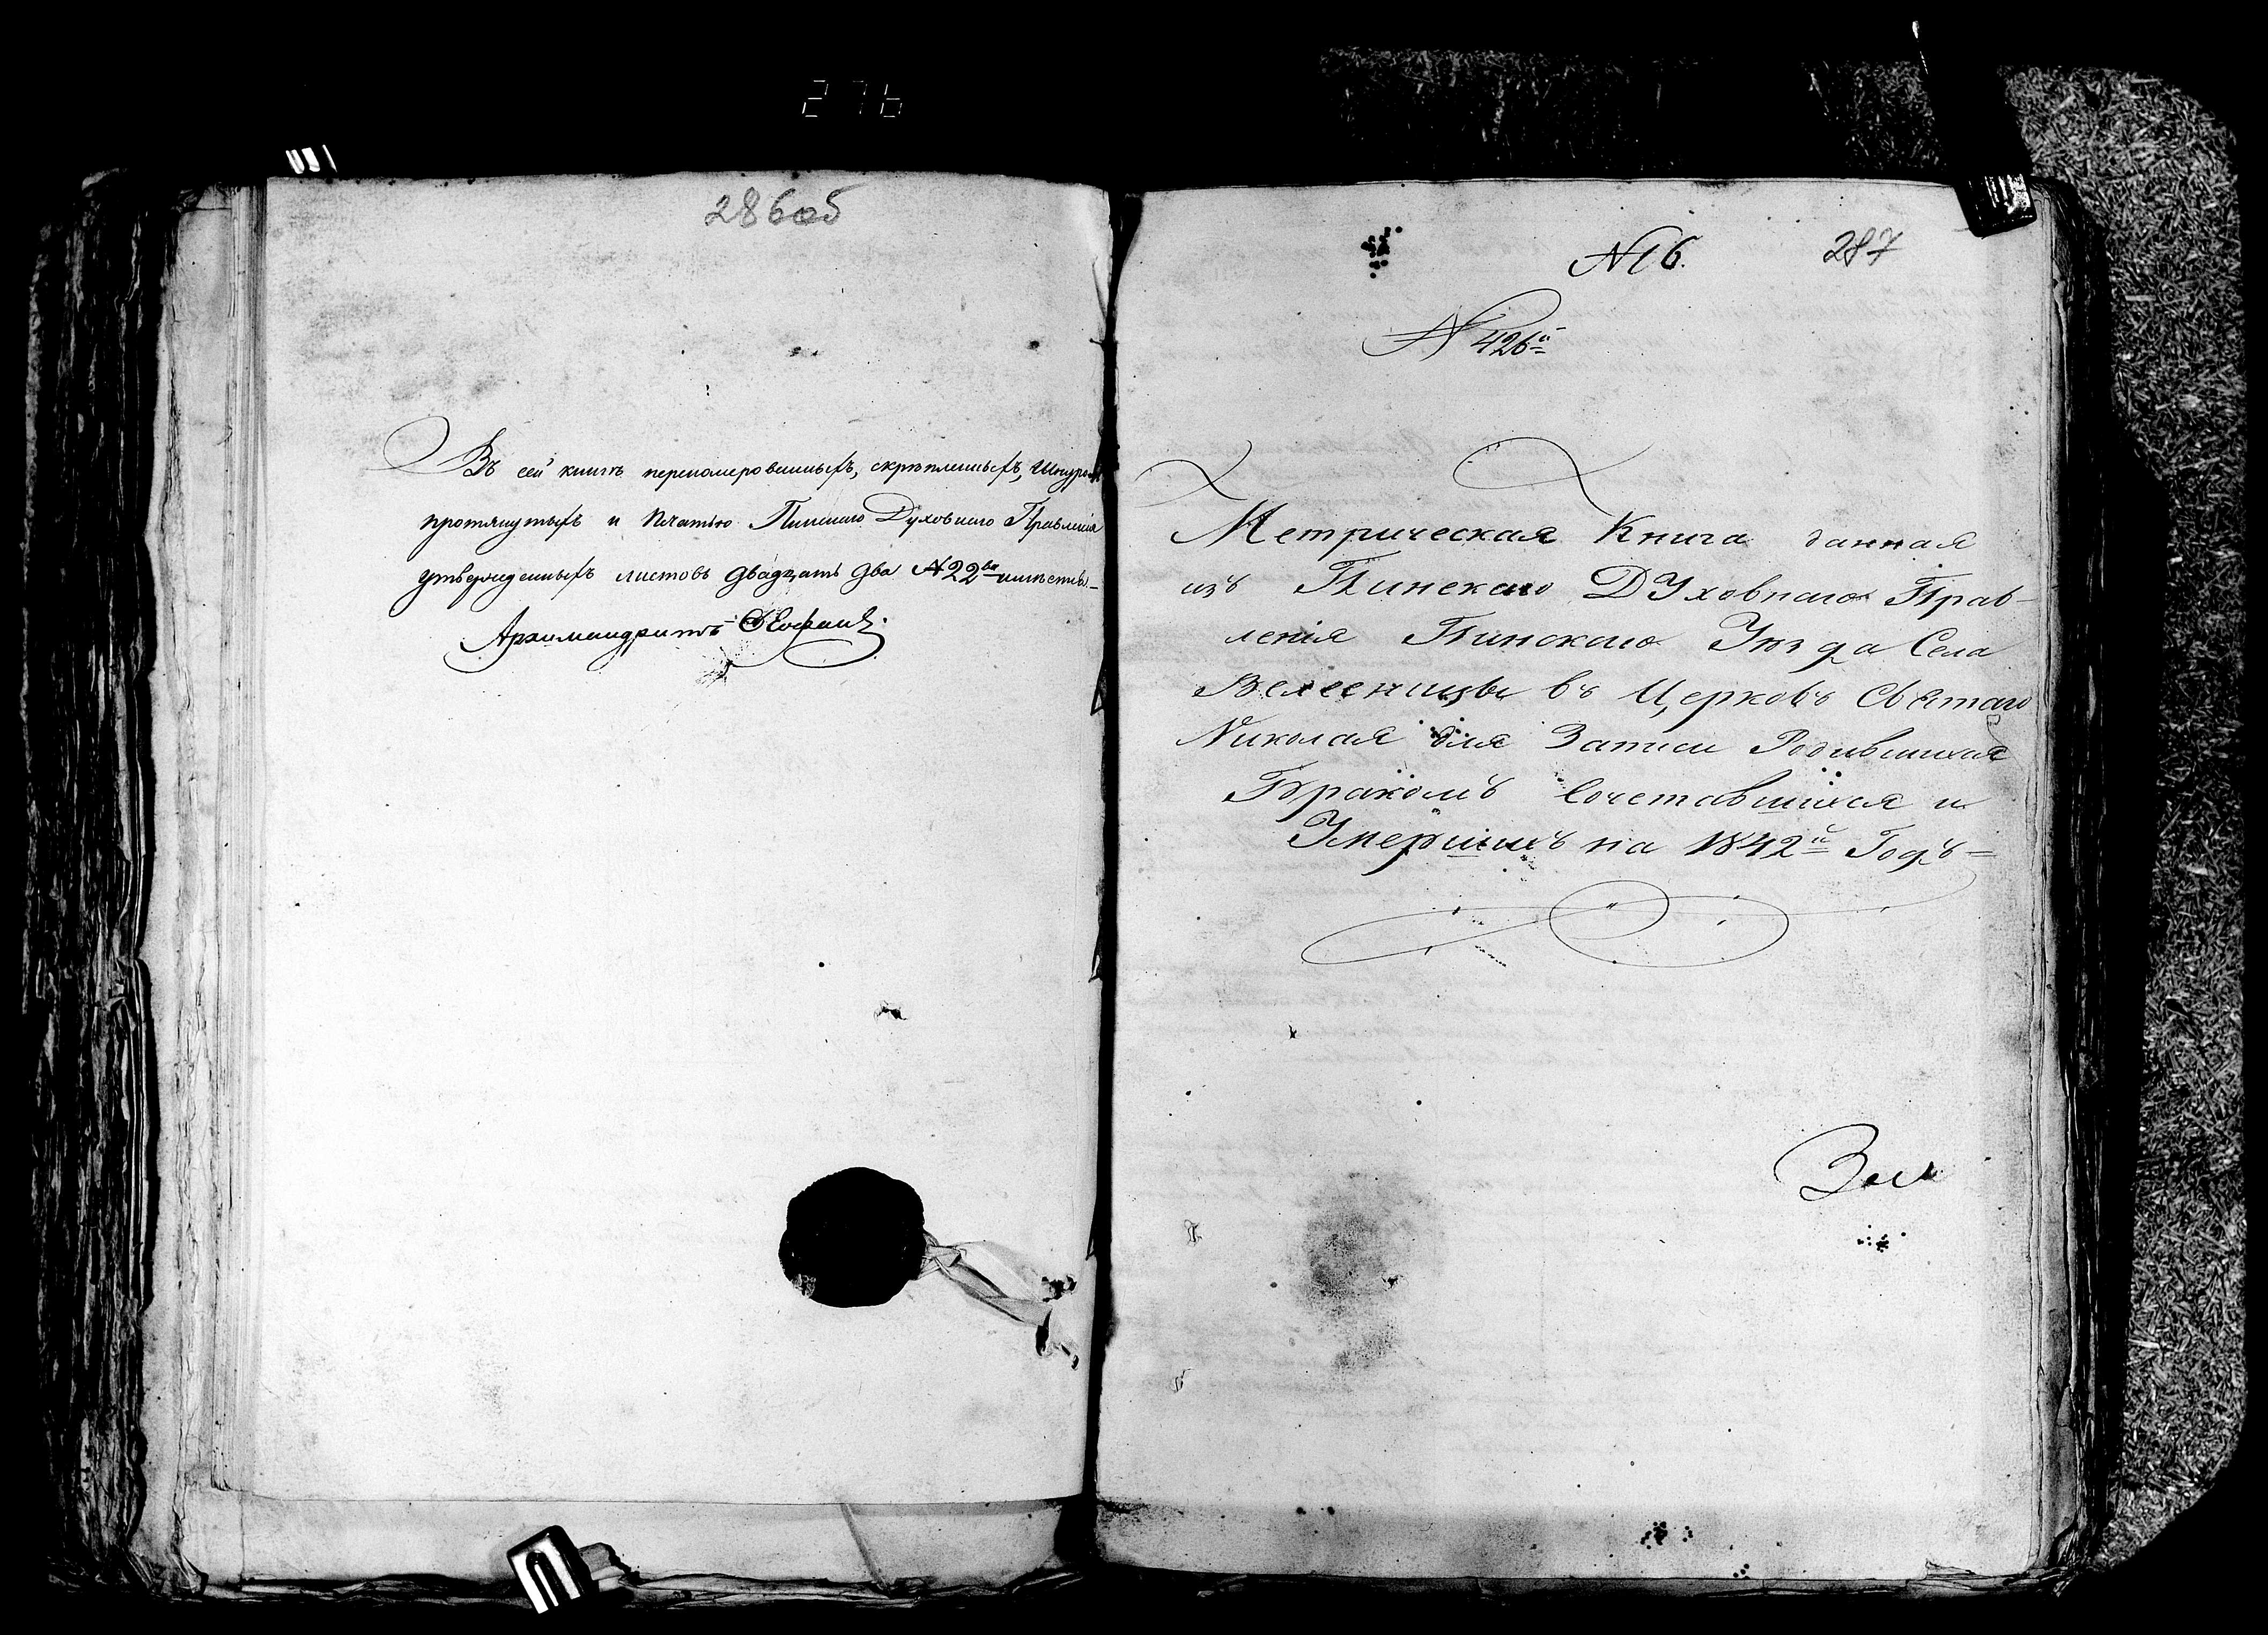 276
286об
Въ сей книгѣ перномерованныхъ, скрѣпленныхъ, Шнуромъ
протянутыхъ и Печатью Пинскаго Духовнаго Правленія
утвержденныхъ листовъ двадцать два №22ва имѣетца
Архимандритъ
№16.
287
№ 426й
Метрическая Книга данная
изъ Пинскаго Духовнаго Прав-
ленія Пинскаго Уѣзда Села
Велесницы въ Церковь Святаго
Николая для Записи Родившихся
Бракомъ Сочетавшихся и
Умершихъ на 1842й Годъ=